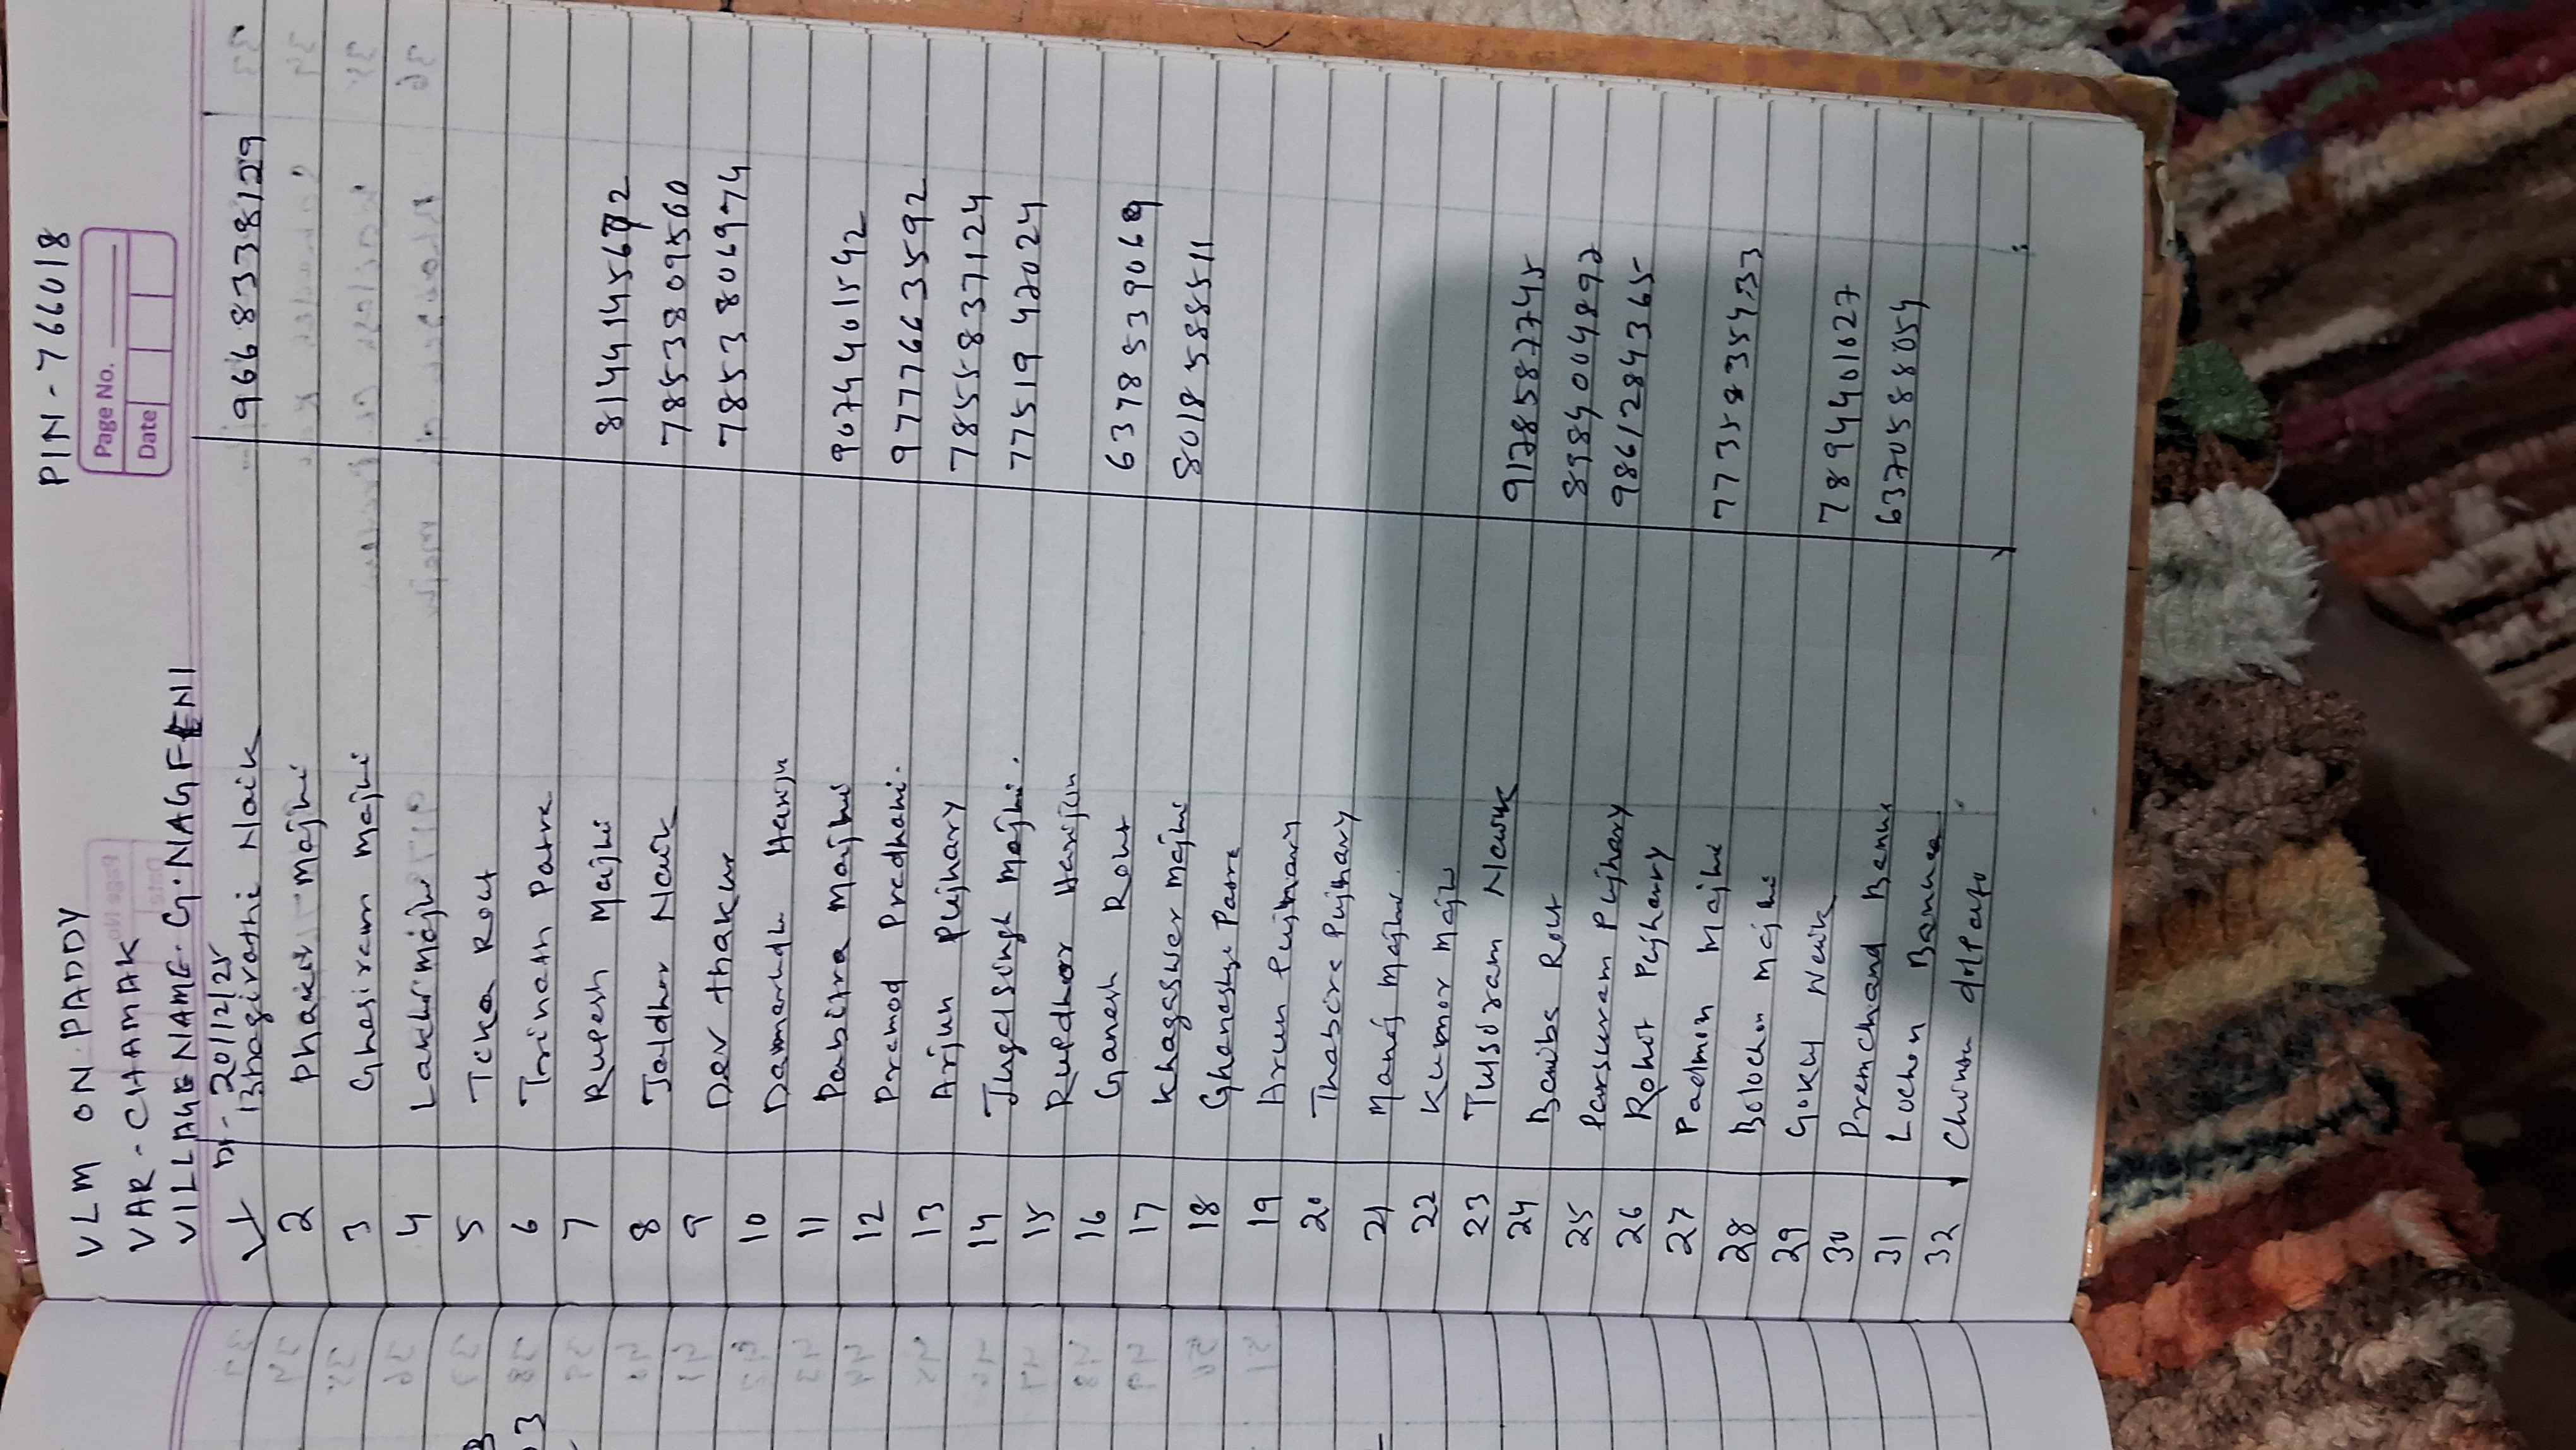 PIN-766018
Page No.
Date
VLM ON PADDY
VAR-CHAMAK
VILLAGE NAME- G.NAGFENI
Dt- 20/12/25
1 Bhagirathi Naik 9668338129
2 Phakir Majhi
3 Ghasiram Majhi
4 Lakhi Majhi
5 Teka Rout
6 Trinath Patra
7 Rupesh Majhi 8144145672
8 Jaldhar Naik 7853809560
9 Dev thakur 7853806974
10 Damarudhr Harijn
11 Pabitra Majhi 9074401542
12 Pramod Pradhani. 9777663592
13 Arjun Pujhary 7855837124
14 Jugalsingh Majhi. 7751947024
15 Rupdhar Harijun
16 Ganesh Rout 6378539069
17 Khagaswer Majhi 8018588511
18 Ghanashya Patra
19 Arun Pujhary
20 Thabira Pujhary
21 Manoj Majhi.
22 Kumar Majhi
23 Tulsiram Naik 9178587745
24 Baniba Rout 8984004892
25 Parsuram Pujhary 9861284365
26 Rohit Pujhary
27 Padman Majhi 7735835433
28 Bolochan Majhi
29 Gokul Naik 7894401027
30 Premchand Bemal 6370588054
31 Lochan
32